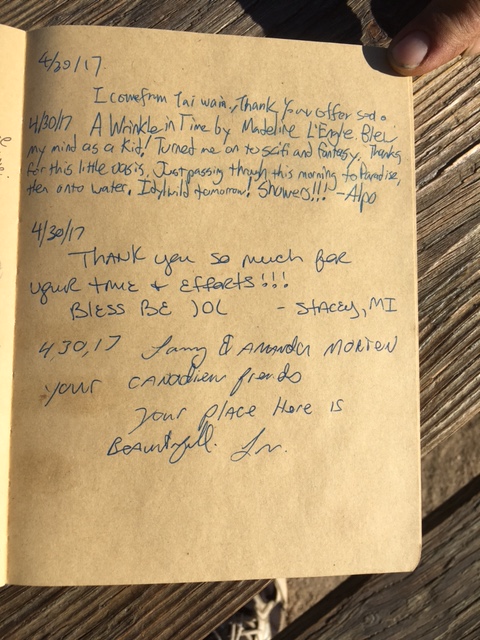 4/29/17.
I come from Taiwain, Thank Your offer soda
4/30/17 A Wrinkle in Time by Madeline L'Engle. Blew
my mind as a kid! Turned me on to scifi and fantasy. Thanks
for this little oasis. Just passing through this morning to Paradise,
then onto water. Idyllwild tomorrow! Showers!!! -Alpo
4/30/17
THANK you so much for
your time & EFFORTS!!!
BLESS BE
- STACEY, MI
4,30,17 & AMANDA MORTON
your CANADIEN friends
your place Here is
BEAUtifull.